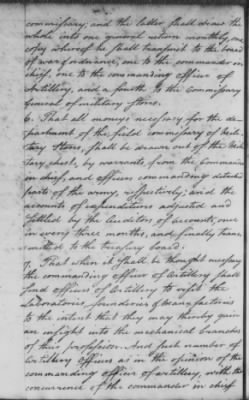 commissary; and the latter shall draw the
whole into one general return monthly, one
copy whereof he shall transmit to the board
of war & ordnance, one to the commander in
chief, one to the commanding officer of
Artillery, and a fourth to the Commissary
General of military Stores.
6. That all moneys necessary for the de-
partment of the field commissary of Mili-
tary Stores, shall be drawn out of the Mili-
tary chests, by warrants from the Commander
in chief, and officers commanding detached
parts of the army, respectively; and the
accounts of expenditures adjusted and
settled by the auditors of accounts; once
in every three months, and finally trans-
mitted to the treasury board:
7. That when it shall be thought necessary
the commanding officer of Artillery shall
send officers of Artillery to visit the
Laboratories, founderies & manufactories
to the intent that they may thereby gain
an insight into the mechanical branches
of their profession. And such number of
Artillery officers as in the opinion of the
commanding officer of artillery, with the
concurrence of the commander in chief